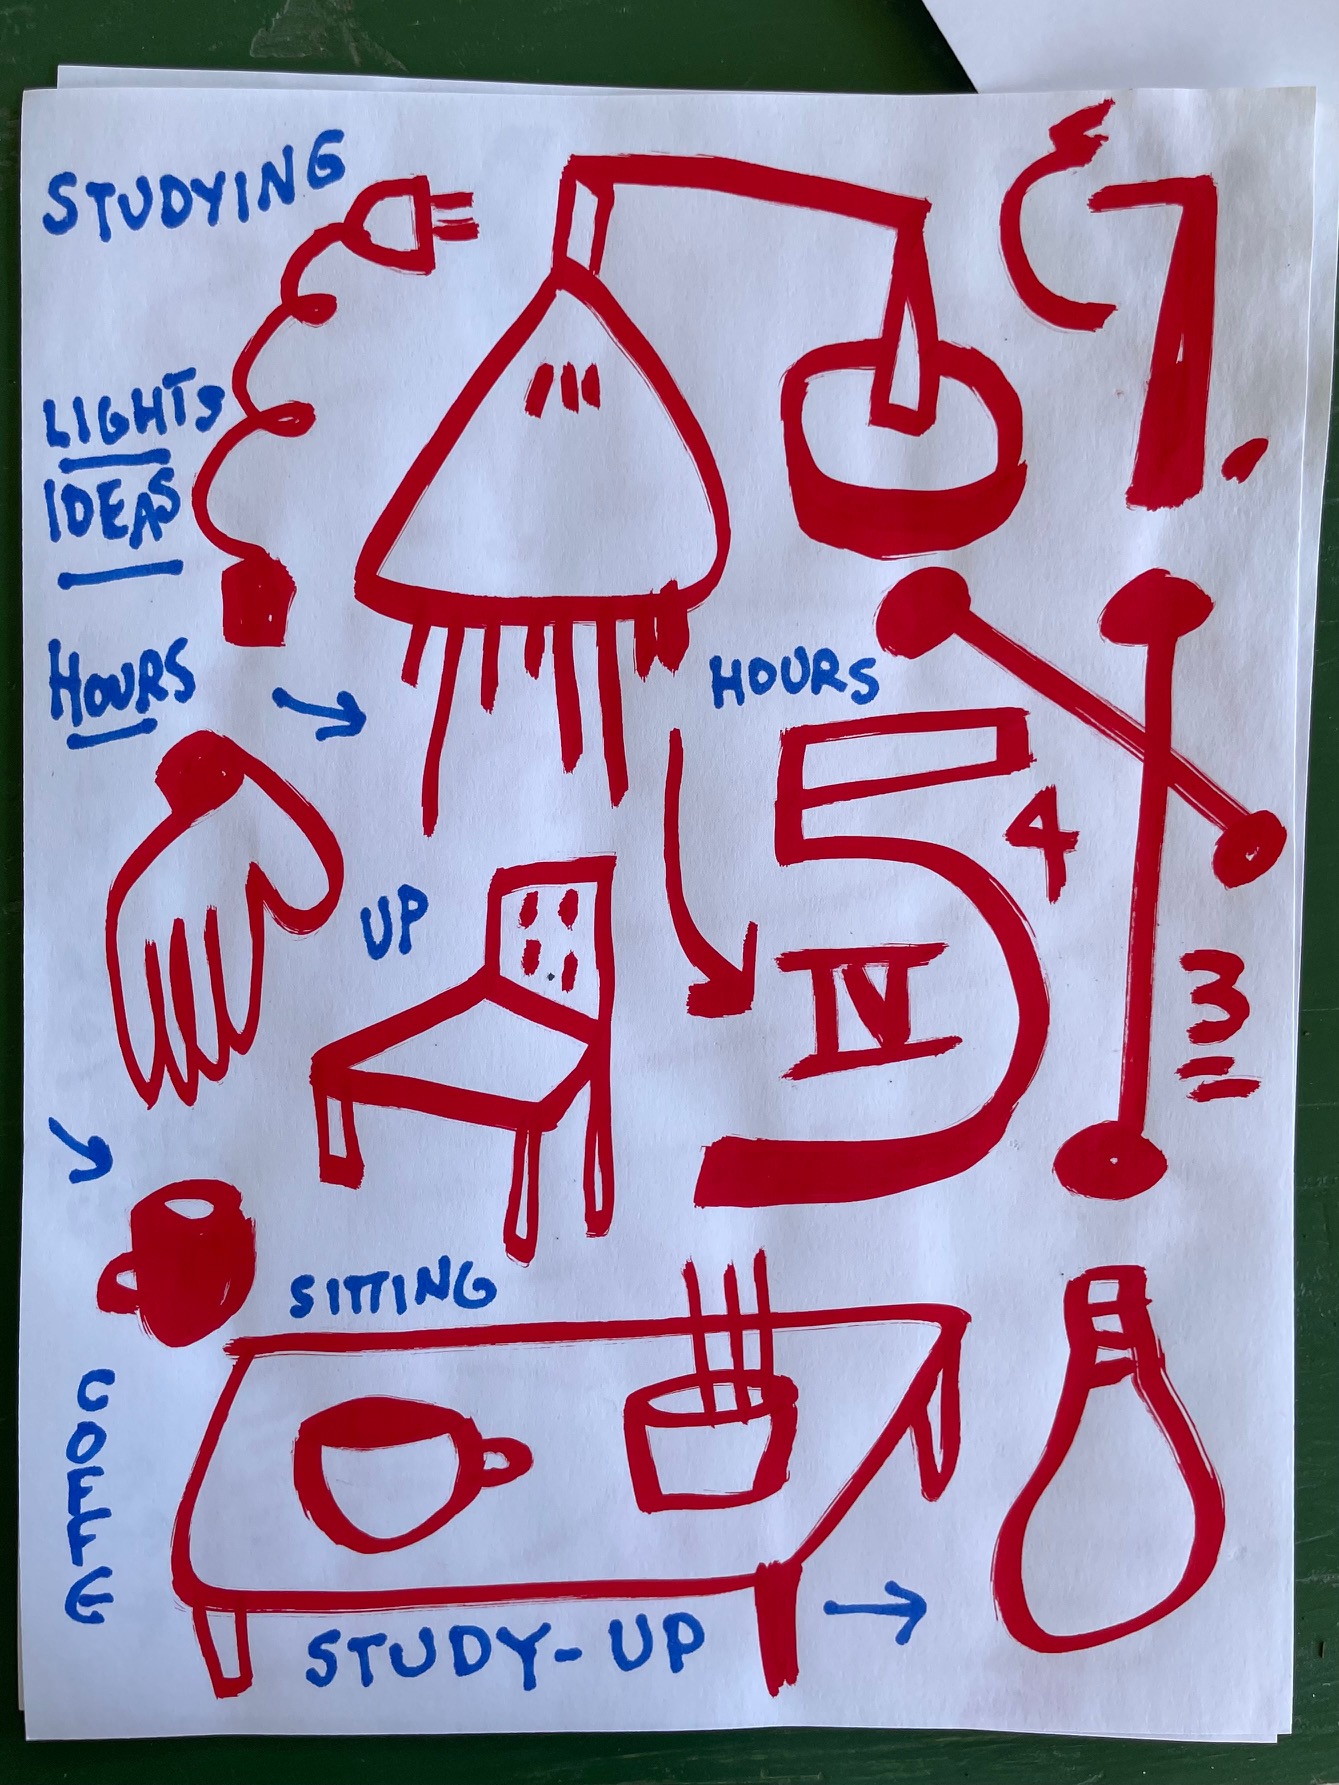 STUDYING
7.
LIGHTS
IDEAS
HOURS
HOURS
5
4
UP
IV
3
SITTING
COFFE
STUDY-UP